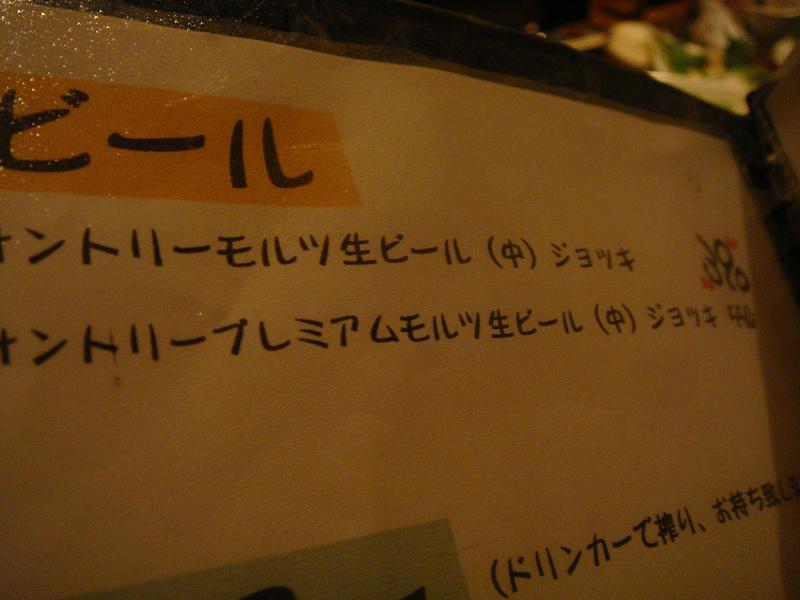 ビール
サントリーモルツ生ビール (中) ジョッキ
サントリープレミアムモルツ生ビール (中) ジョッキ
(ドリンカーで搾り、お持ち致しま